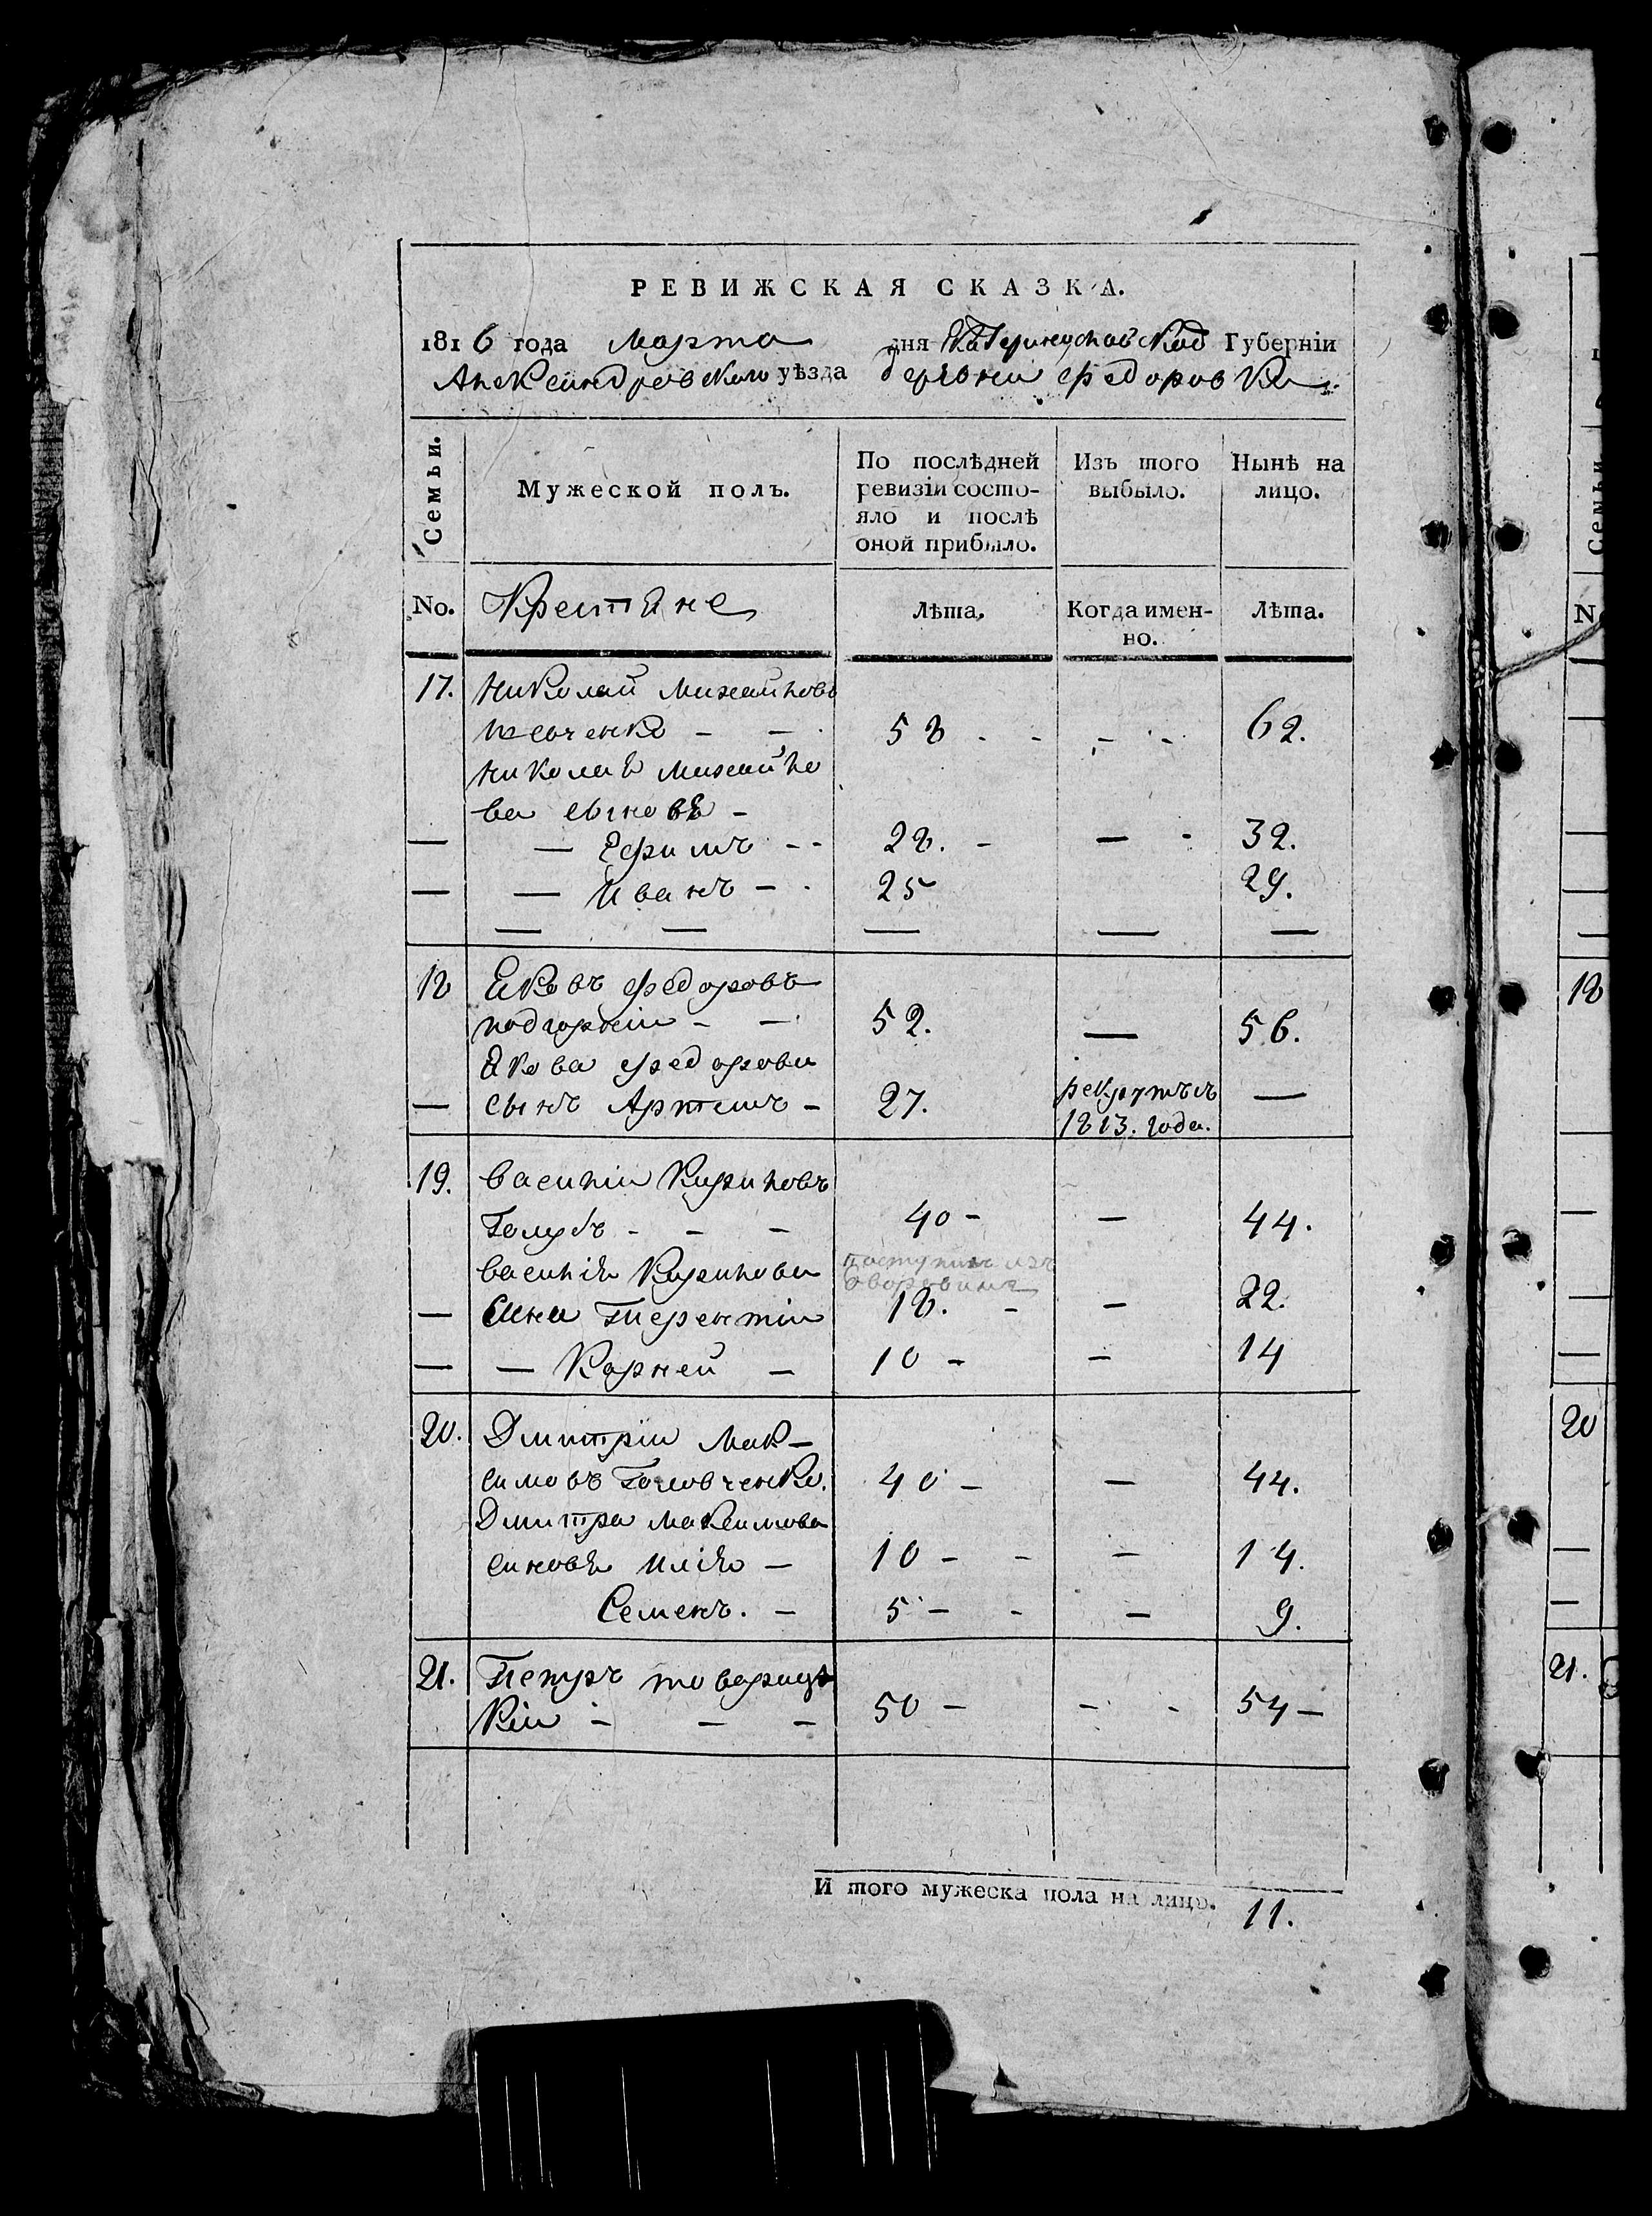 РЕВИЖСКАЯ СКАЗКА.
1816 года Марта дня Екатеринославской Губерніи
Александровского уѣзда деревни Федоровки
Семьи.
Мужеской полъ.
По послѣдней ревизіи состояло и послѣ оной прибыло.
Изъ того выбыло.
Нынѣ на лицо.
No. Крестяне Лѣта. Когда именно. Лѣта.
17. Николай Михайловъ
58 - - - - 62.
Николая Михайло
ва сыновя -
— — Ефимъ - - 28. - — - 32.
— — Иванъ - - 25 29.
— — — — —
18 Яковъ Федоровъ
подгорній - — 52. — 56.
Якова Федорова
— сынъ Артемъ - 27. рекрутъ въ —
1813. года.
19. Василій Кириловъ
Голубъ - - - 40 - — 44.
Василія Кирилова
— сины Терентій 18. - - 22.
— — Карней - 10 - - 14
20. Дмитрій Мак-
симовъ Головченко. 40 - — 44.
Дмитра Максимова
синовя Илія - 10 - - — 14.
Семенъ. - 5 - - — 9.
21. Петръ товариц
кій - - - 50 - - - 54 -
И того мужеска пола на лицо. 11.
N
Семьи
18
20
21.